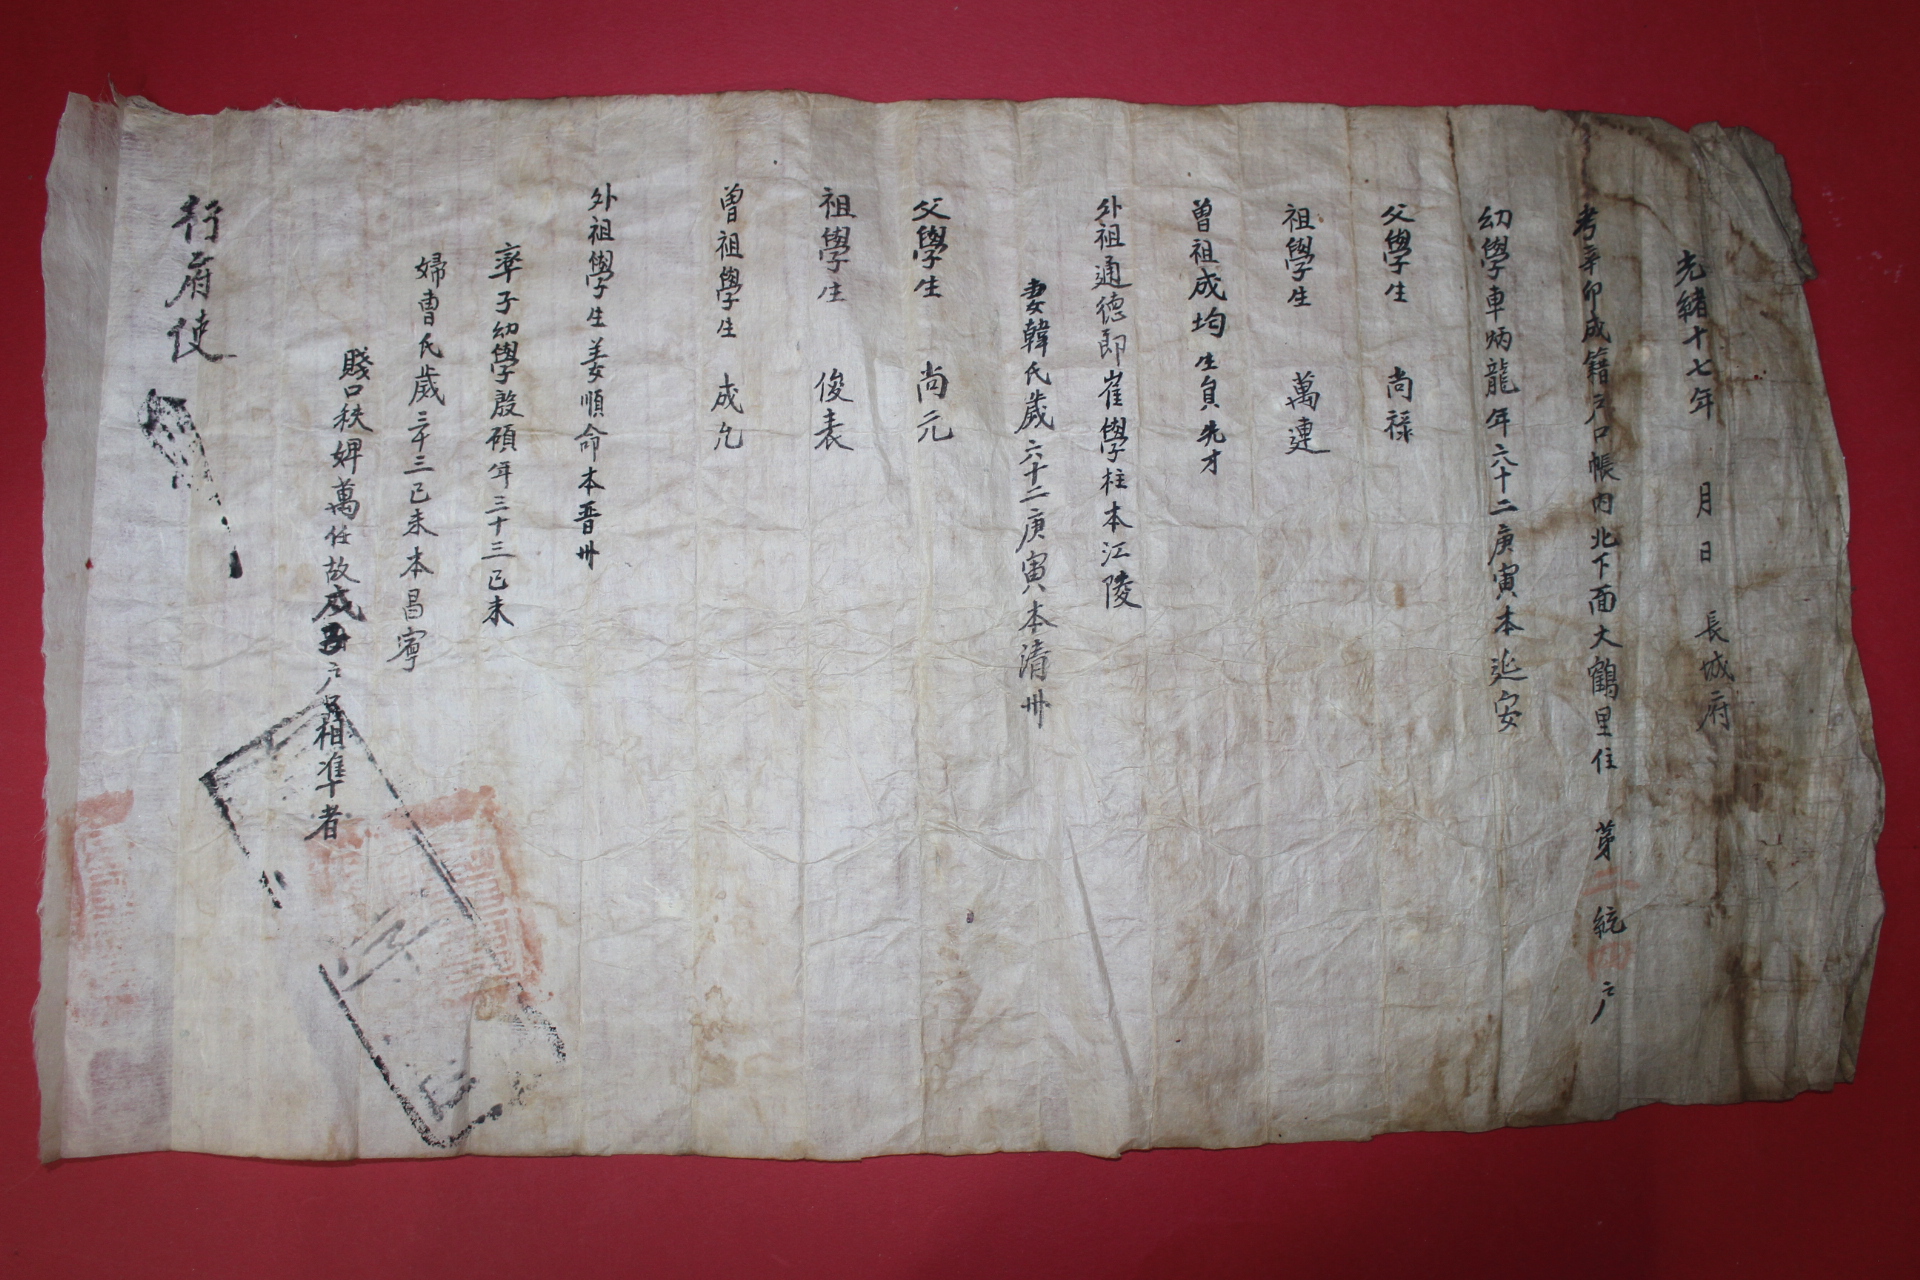 光緒十七年 月 日 長城府
考辛卯成籍戶口帳內北下面大鶴里住 第二統四戶
幼學車炳龍年六十二庚寅本延安
父學生 尚祿
祖學生 萬連
曾祖成均生員先才
外祖通德郎崔學柱本江陵
妻韓氏歲六十二庚寅本清州
父學生 尚元
祖學生 俊表
曾祖學生 成允
外祖學生姜順命本晉州
率子幼學殷碩年三十三己未
婦曺氏歲三十三己未本昌寧
賤口秩婢萬任故戊子戶口相準者
行府使